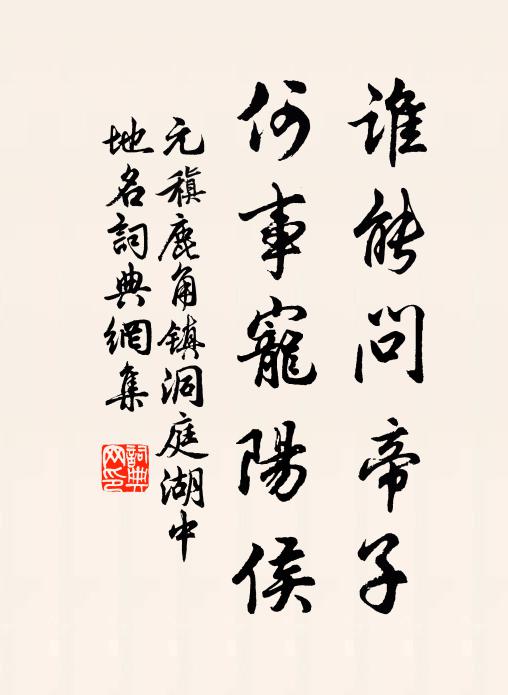 誰能問帝子
何事寵陽侯
元稹鹿角鎮洞庭湖中
地名詞典網集
詞典
网印